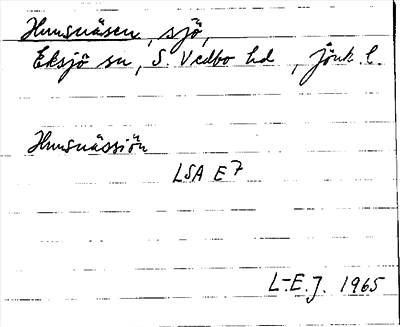 Hunsnäsen, sjö,
Eksjö sn, S. Vedbo hd, jönk. l.
Hunsnässjön
LSA E7
L-E.J. 1965